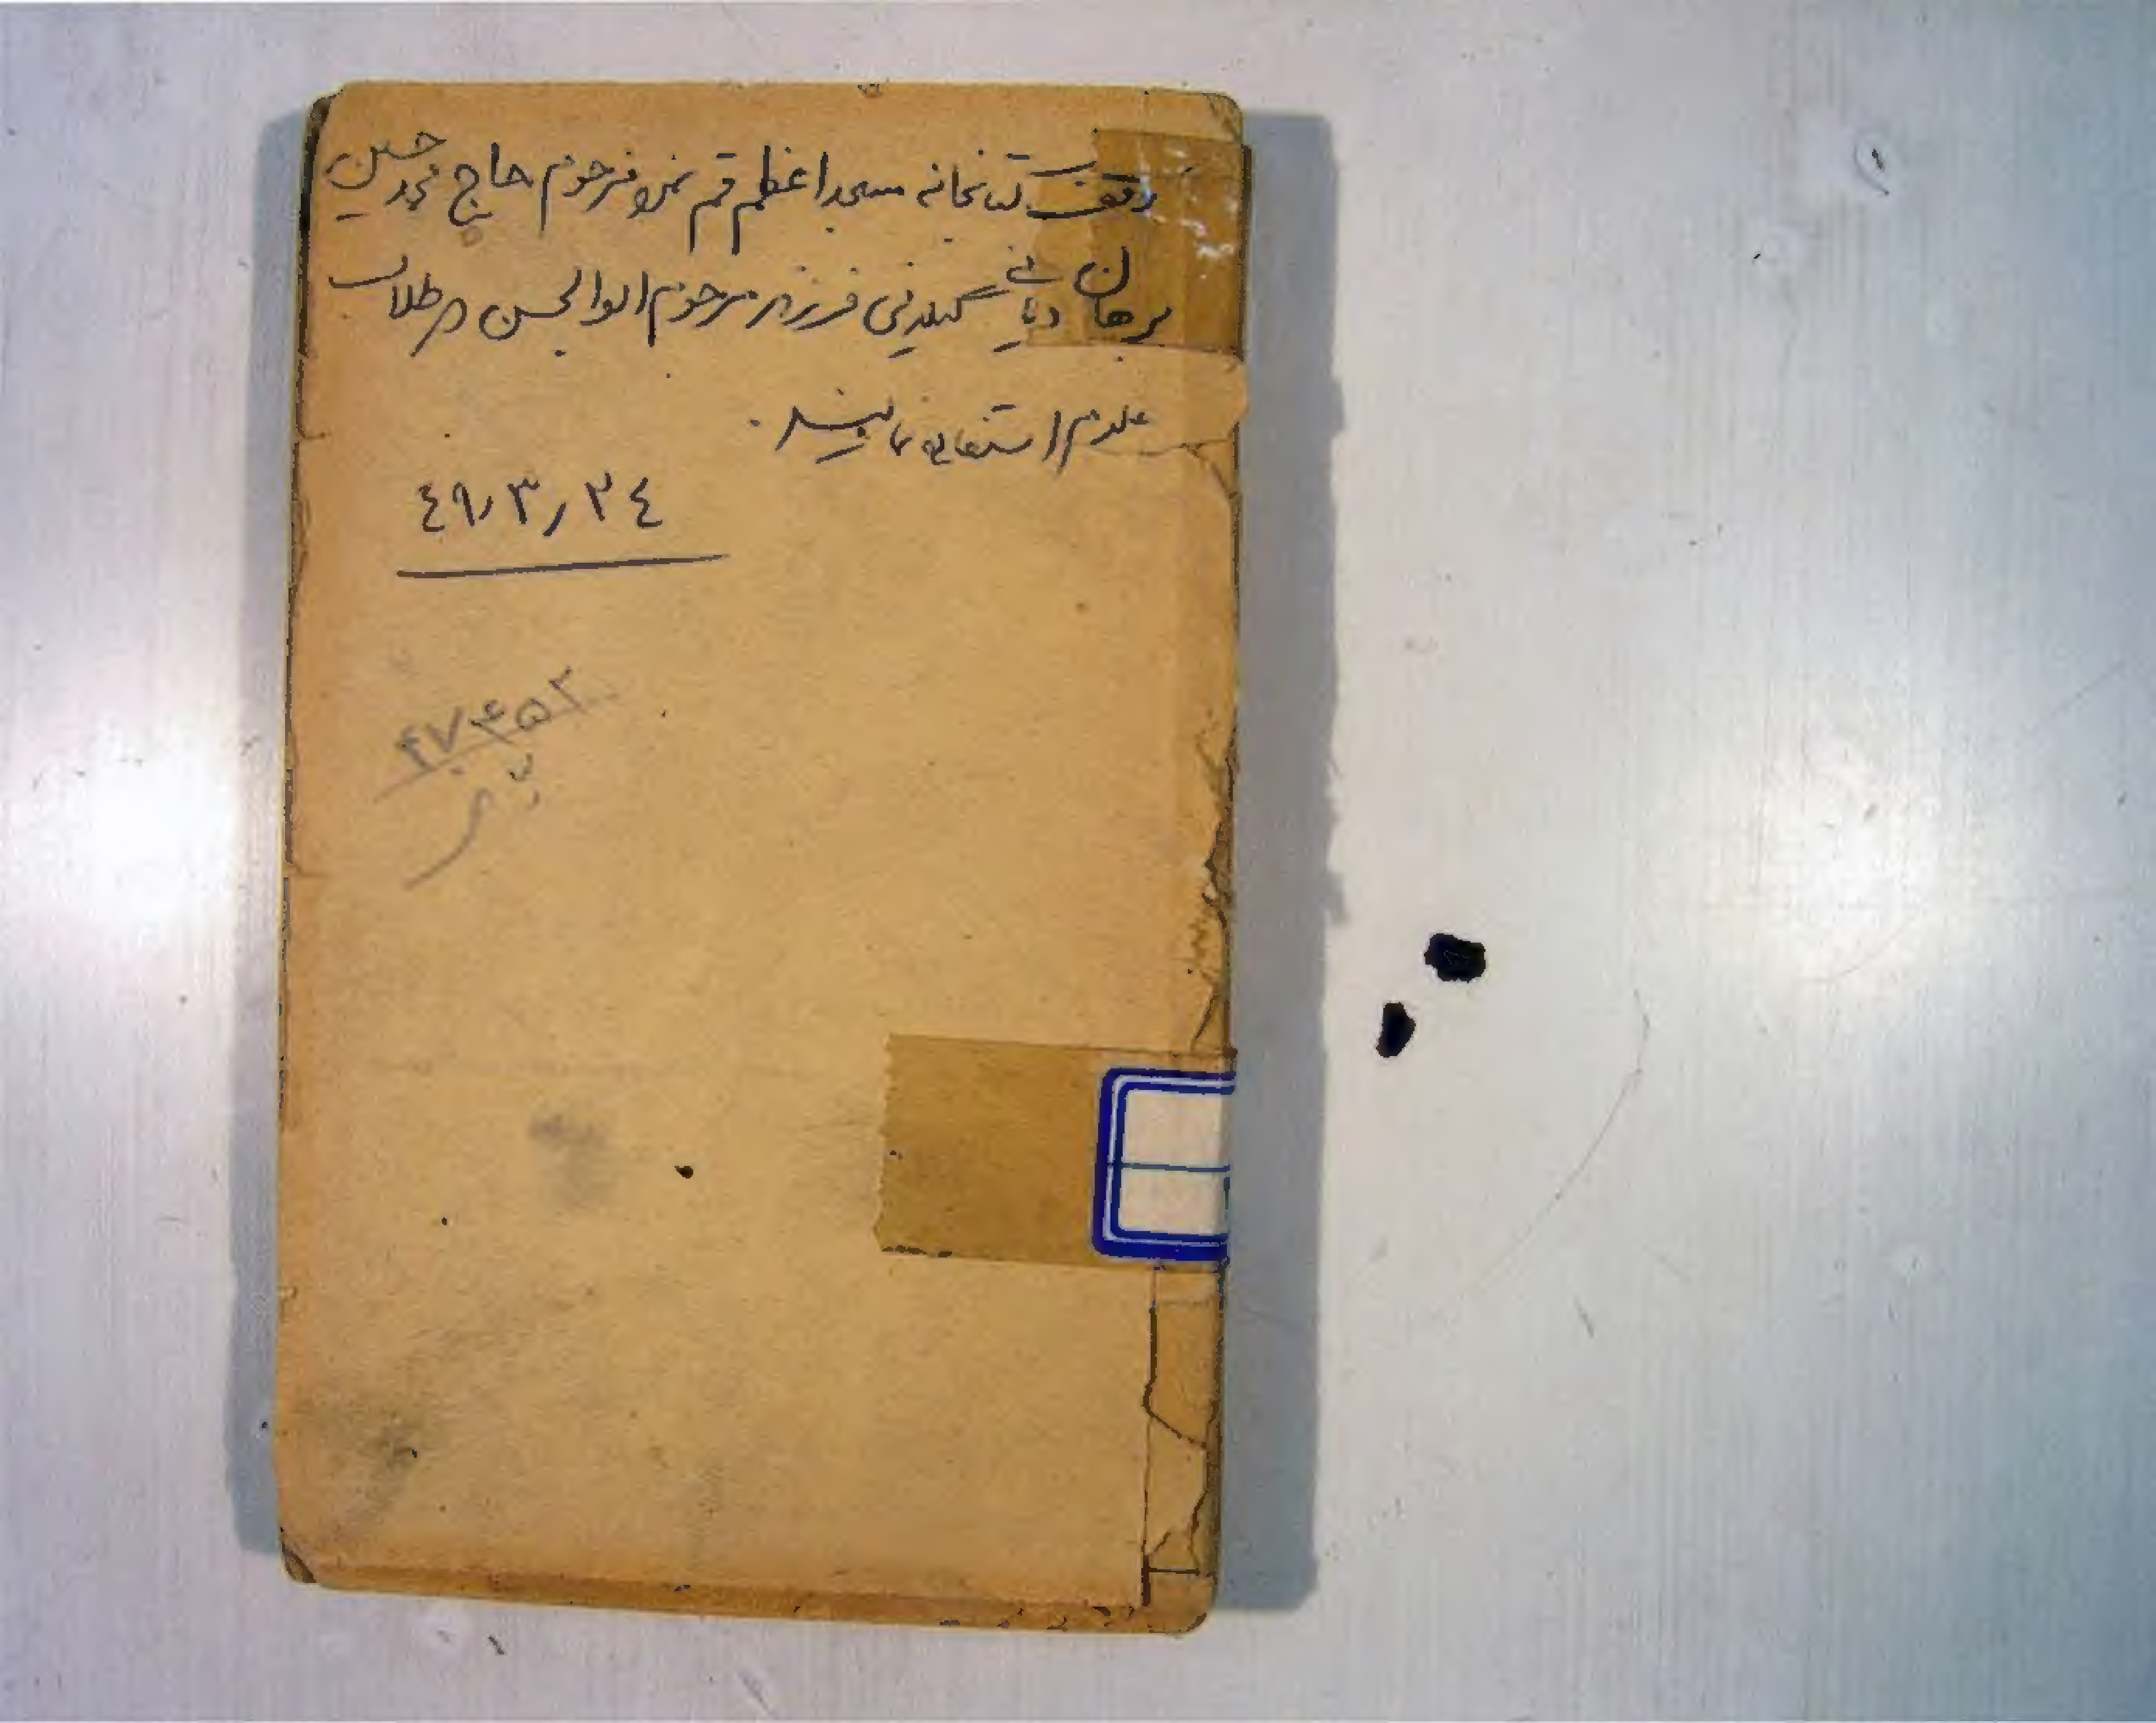 وقف کتابخانه مسجد اعظم قم نمود مرحوم حاج محمد حسین
برهان دیانی گیلانی فرزند مرحوم ابوالحسن در طلاب
علوم استفاده نمایند.
٤٩٫٣٫٢٤
۴۷۴۵۲